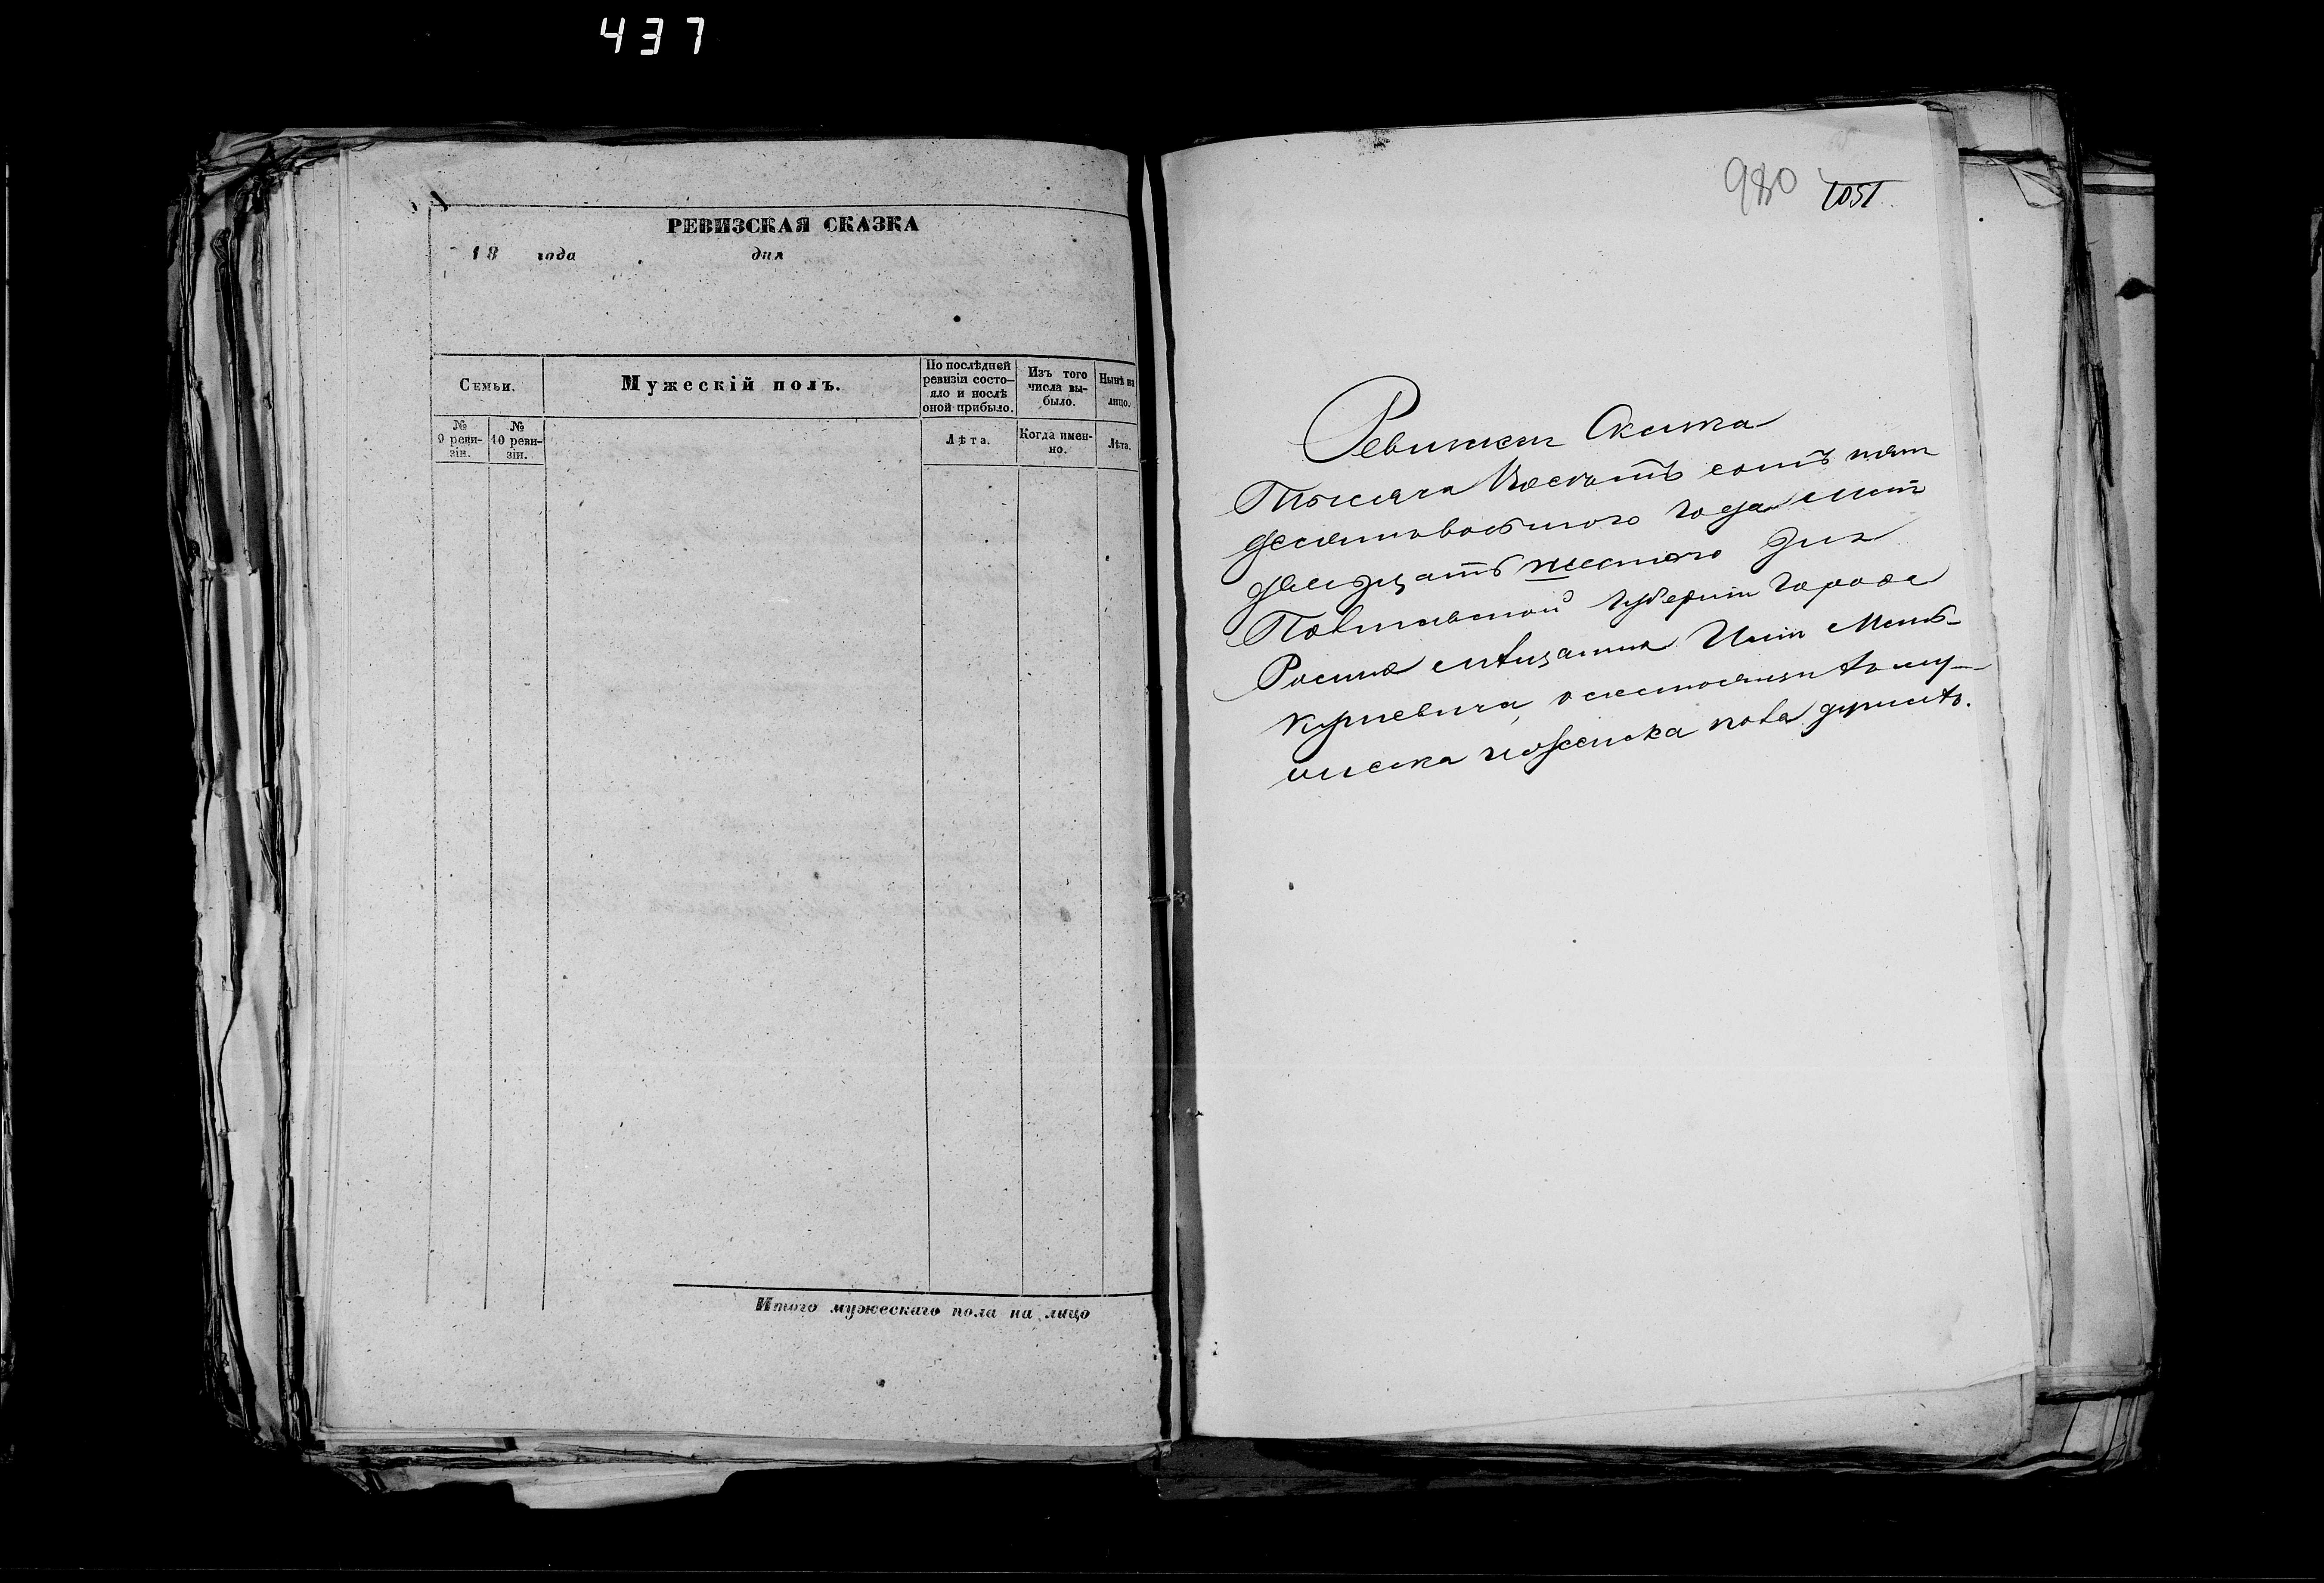 437
РЕВИЗСКАЯ СКАЗКА
18 года дня
Семьи.
Мужескій полъ.
По послѣдней ревизіи состояло и послѣ оной прибыло.
Изъ того числа выбыло.
Нынѣ на лицо.
№ 9 ревизіи.
№ 10 ревизіи.
Лѣта.
Когда именно.
Лѣта.
Итого мужескаго пола на лицо
980 1051
Ревизкая Сказка
Тысяча Восѣмъ сотъ пят
десятовосьмого года
двадцать шестого Дня
Полтавской Губерніи Города
мѣщанина
о состоящи
женска пола душахъ.